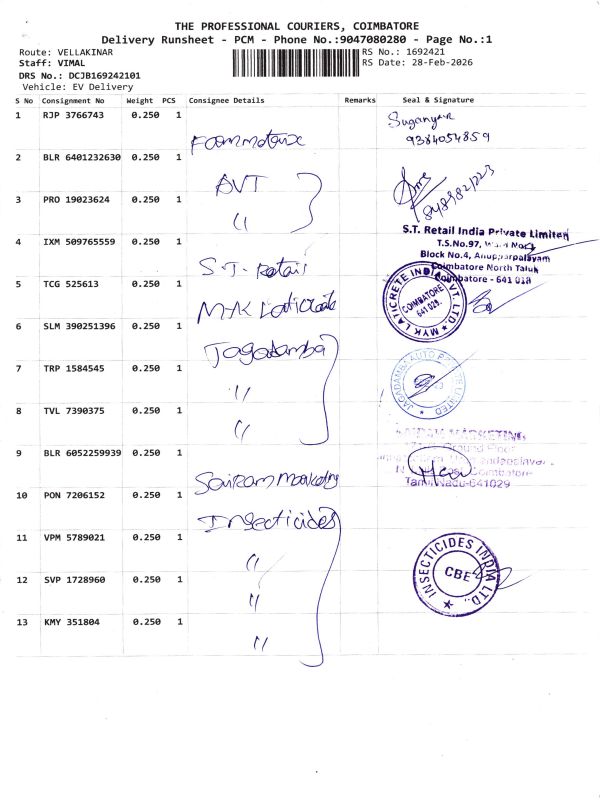 THE PROFESSIONAL COURIERS, COIMBATORE
Delivery Runsheet - PCM - Phone No.:9047080280 - Page No.:1
Route: VELLAKINAR RS No.: 1692421
Staff: VIMAL RS Date: 28-Feb-2026
DRS No.: DCJB169242101
Vehicle: EV Delivery
S No Consignment No Weight PCS Consignee Details Remarks Seal & Signature
1 RJP 3766743 0.250 1
9384054859
2 BLR 6401232630 0.250 1 AVT
3 PRO 19023624 0.250 1 "
S.T. Retail India Private Limited
T.S.No.97,
Block No.4, Anupparpalayam
Coimbatore North Taluk
Coimbatore - 641 018
4 IXM 509765559 0.250 1 S.T. Retail
5 TCG 525613 0.250 1 MYK Laticrete
MYK LATICRETE INDIA PVT. LTD.
COIMBATORE
641 029.
6 SLM 390251396 0.250 1 Jagadamba
7 TRP 1584545 0.250 1 "
JAGADAMBA AUTO PRIVATE LIMITED
8 TVL 7390375 0.250 1 "
9 BLR 6052259939 0.250 1 Sairam Marketing
MARKETING
Ground Floor
Coimbatore-
Tamil Nadu-641029
10 PON 7206152 0.250 1 Insecticides
11 VPM 5789021 0.250 1 "
INSECTICIDES INDIA LTD.,
CBE
12 SVP 1728960 0.250 1 "
13 KMY 351804 0.250 1 "